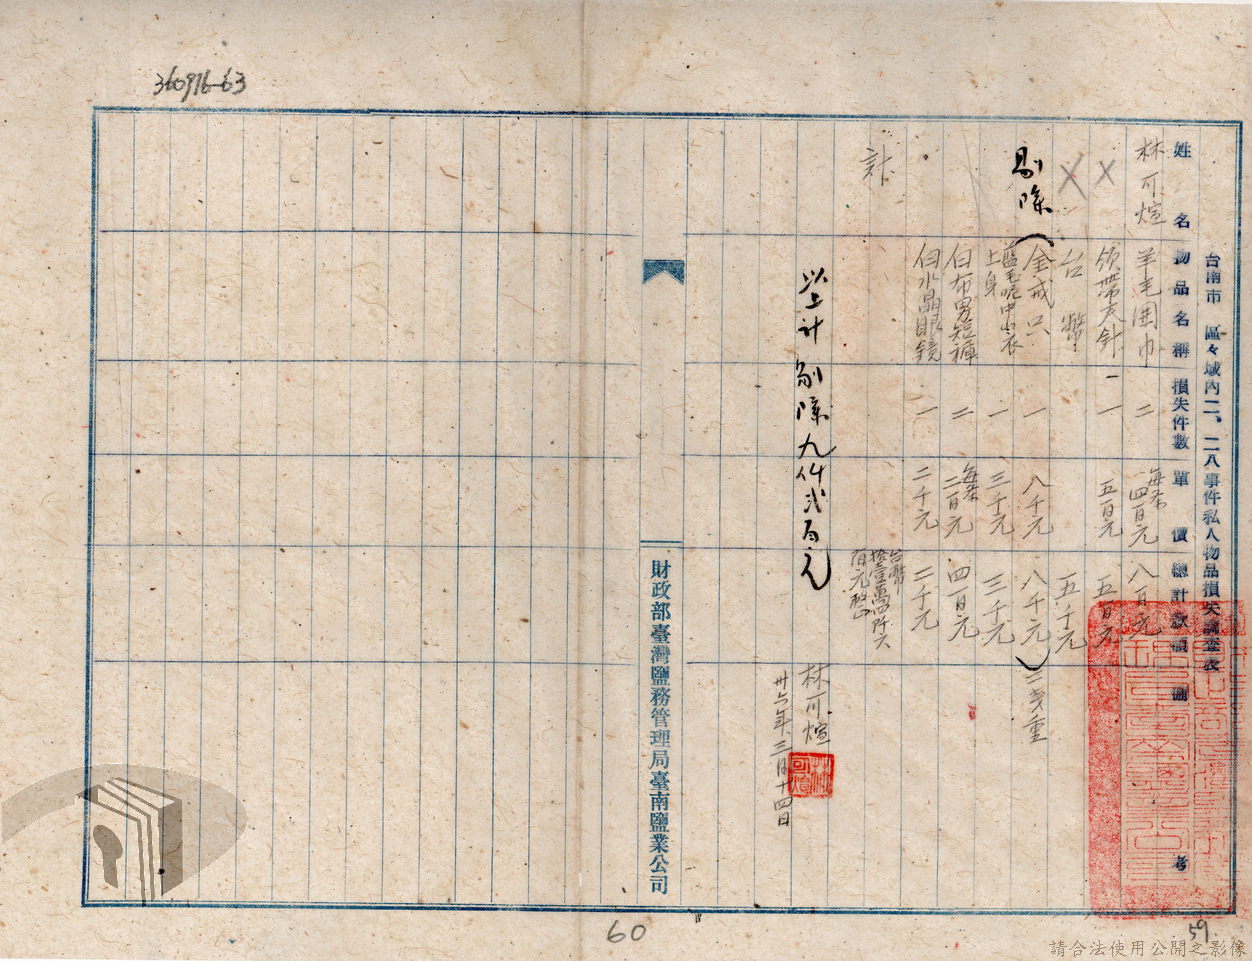 360916-63
台南市 區々域內二、二八事件私人物品損失調查表
姓名 物品名稱 損失件數 單價 總計款項 備考
林可煊 羊毛圍巾 二 每條四百元 八百元
× 領帶夫針 一 一 五百元 五百元
× 台幣 五千元
剔除（金戒只 一 八千元 八千元） 二錢重
藍毛呢中山衣上身 一 三千元 三千元
白布男短褲 二 每條二百元 四百元
白水晶眼鏡 一 二千元 二千元
計
以上計剔除九件弍百元
林可煊
卅六年、三月十四日
財政部臺灣鹽務管理局臺南鹽業公司
60
59
請合法使用公開之影像